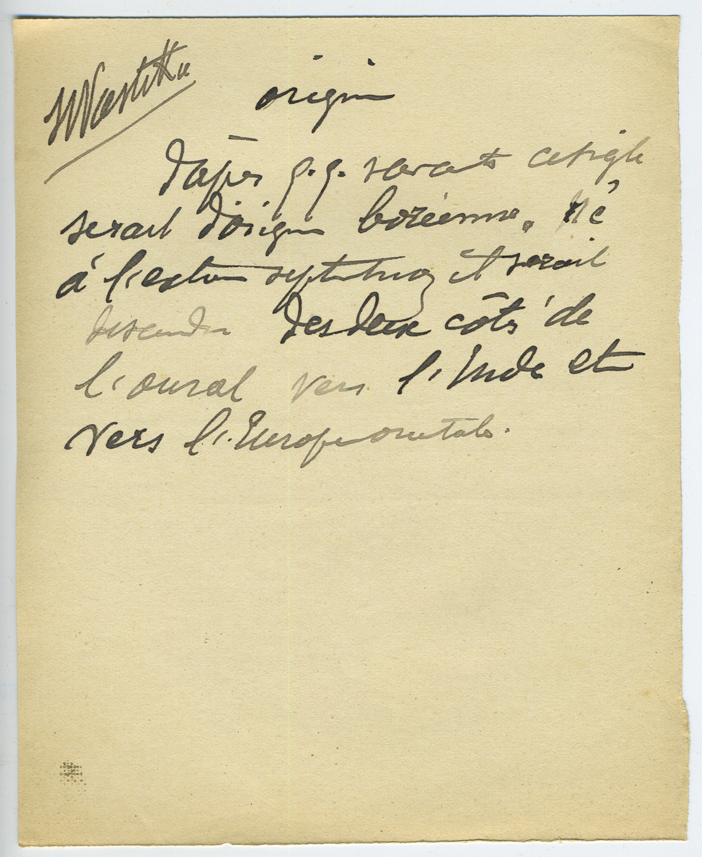 Swastika
origine
d'après q.q. savants ce sigle
serait d'origine boréenne. Né
à l'extrême septentrion il serait
descendu des deux côtés de
l'oural vers l'Inde et
vers l'Europe orientale.